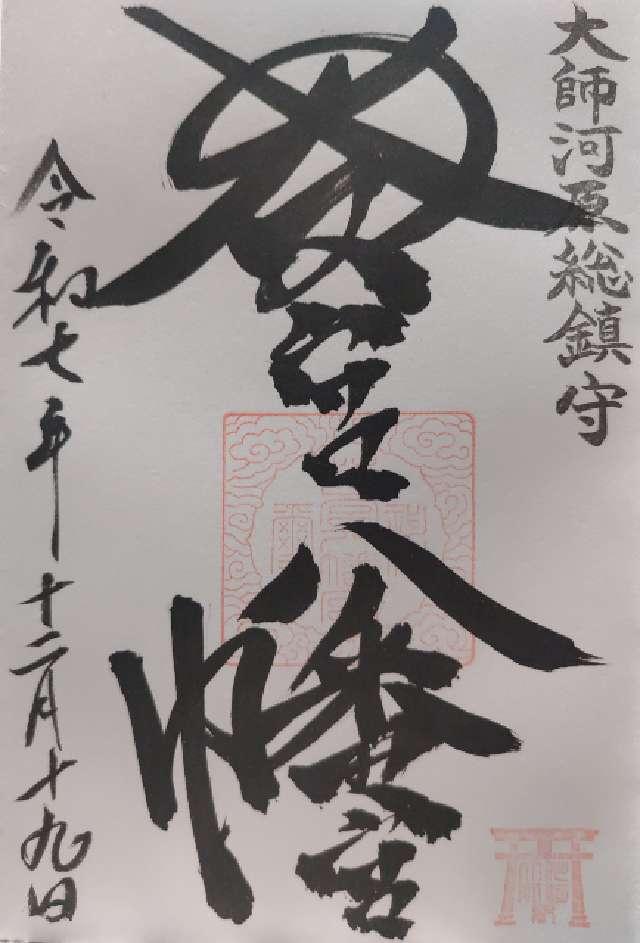 大師河原総鎮守
若宮八幡宮
令和七年十二月十九日